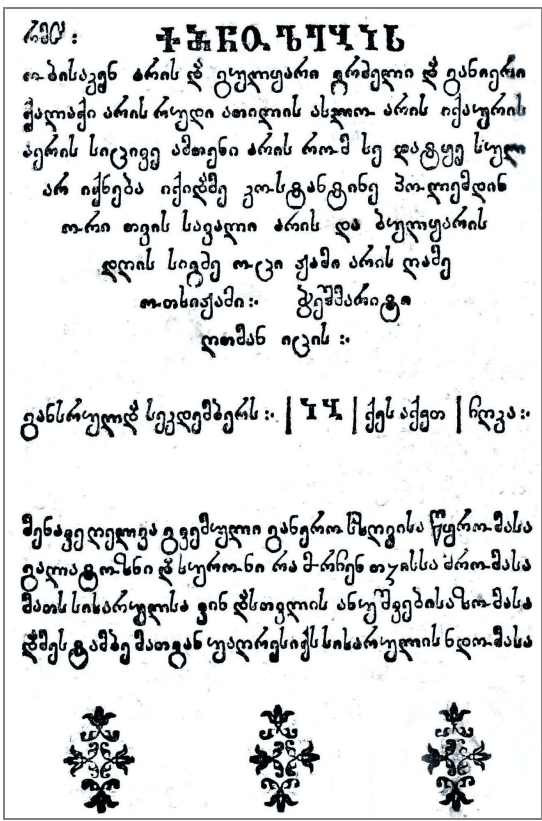 რმთ :
ႵႫႬႳႪႤႡႨႱ
ობისაკენ არის დ ბულყარი გრძელი დ განიერი
ქალაქი არის რუდი ათილის ახლო არის იქაურის
აერის სიცივე ამთენი არის რომ სე დატყე სულ
არ იქნება იქიდმე კოსტანტინე პოლემდინ
ორი თვის სავალი არის და ბულყარის
დღის სიგძე ოცი ჟამი არის ღამე
ოთხი ჟამი:· ჭეშმარიტი
ღთმან იცის :·
განსრულდ სეკდემბერს :· | | ქეს აქეთ | ჩღკა :·
მენავე ღელვა გვემული განერო ზღვისა წყრომასა
გალატოზნი დ სურონი რა მორჩენ თჳსსა შრომასა
მათს სიხარულსა ვინ დსთვლის ანუ შვებისა ზომასა
დმესტამბე მათგან უაღრესი ქს სიხარულის ნდომასა